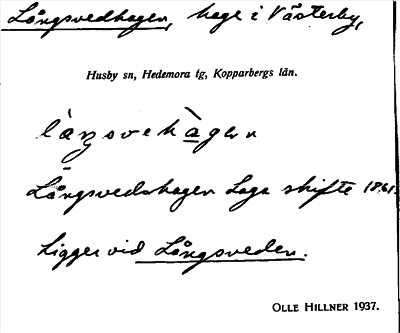 Långsvedhagen, hage i Västerby,
Husby sn, Hedemora tg, Kopparbergs län.
Långsvedshagen Laga skifte 1861.
Ligger vid Långsveden.
OLLE HILLNER 1937.